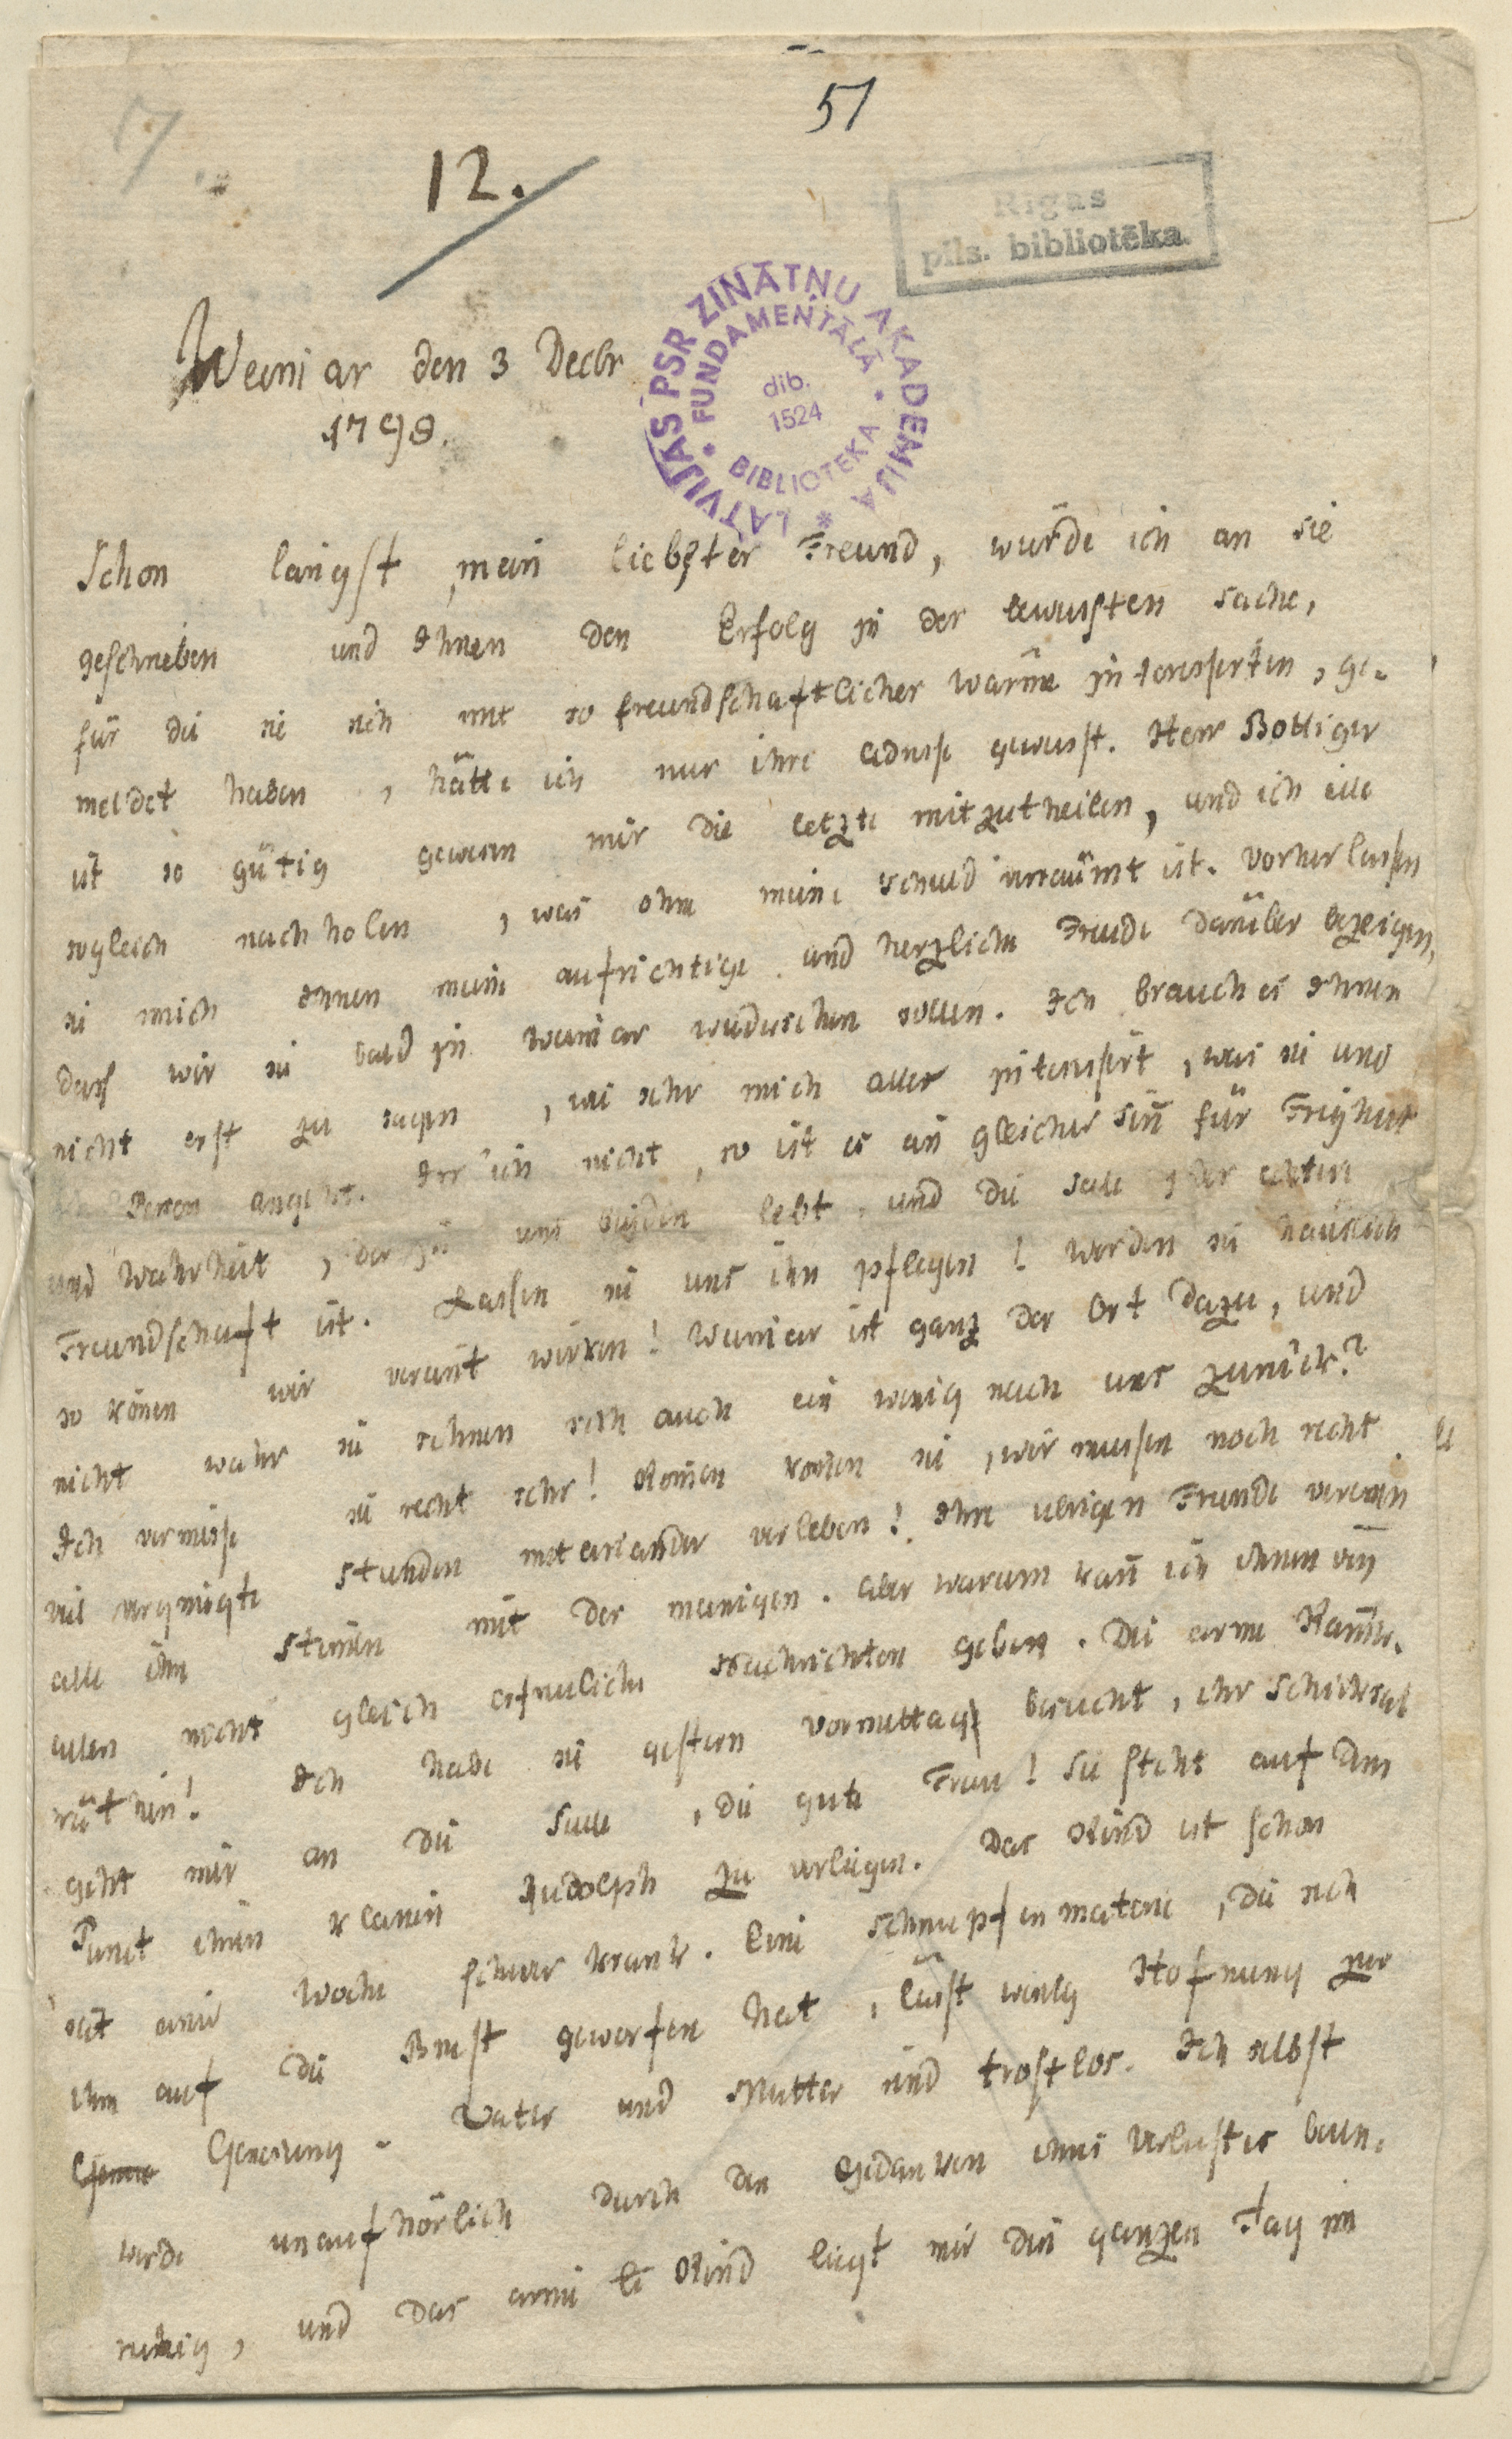 51
17.
12.
Rigas
pils. bibliotēka.
LATVIJAS PSR ZINĀTŅU AKADEMIJA
FUNDAMENTĀLĀ BIBLIOTEKA
dib.
1524
Weimar den 3 Decbr
1798.
Schon längst, mein liebster Freund, würde ich an sie
geschrieben und Ihnen den Erfolg in der bewusten Sache,
für die sie sich mit so freundschaftlicher Wärme interessirten, ge-
meldet haben, hätte ich nur ihre Adresse gewusst. Herr Bottiger
ist so gütig gewesen mir die letzte mitzutheilen, und ich eile
sogleich nachholen, was ohne meine Schuld versäumt ist. Vorher lassen
sie mich Ihnen meine aufrichtige und herzliche Freude darüber bezeigen,
dass wir sie bald in Weimar wiedersehen sollen. Ich brauch es Ihnen
nicht erst zu sagen, wie sehr mich alles interessirt, was sie und
Person angeht. Irr' ich nicht, so ist es ein gleicher Sinn für Freyheit
und Wahrheit, der in uns beyden lebt, und die Seele jeder ächten
Freundschaft ist. Lassen sie uns ihn pflegen! Werden sie häuslich
so könen wir vereint wirken! Weimar ist ganz der Ort dazu, und
nicht wahr sie sehnen sich auch ein wenig nach uns zurück?
Ich vermisse sie recht sehr! Komen komen sie, wir mussen noch recht
viel vergnügte Stunden miteinander verleben! Ihre übrigen Freunde verein
alle ihre Stimen mit der meinigen. Aber warum kan ich ihnen von
allen nicht gleich erfreuliche Nachrichten geben. Die arme Kamer-
räthin! Ich habe sie gestern Vormittag besucht, ihr Schicksal
geht mir an die Seele, die gute Frau! Sie steht auf dem
Punct ihren kleinen Rudolph zu verliegen. Das Kind ist schon
seit einer Woche schwer krank. Eine Schnupfenmaterie, die sich
ihm auf die Brust geworfen hat, lässt wenig Hofnung zur
Genesung. Vater und Mutter sind trostlos. Ich selbst
werde unaufhörlich durch den Gedanken ihres Verlustes beun-
ruhig, und das arme Kind liegt mir den ganzen Tag im